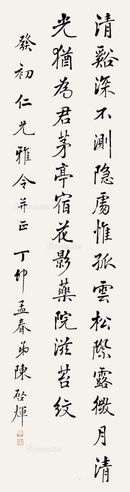 清谿深不測隐處惟孤雲松際露微月清
光猶為君茅亭宿花影藥院滋苔紋
發初仁兄雅令并正 丁卯孟春弟陳啓煇